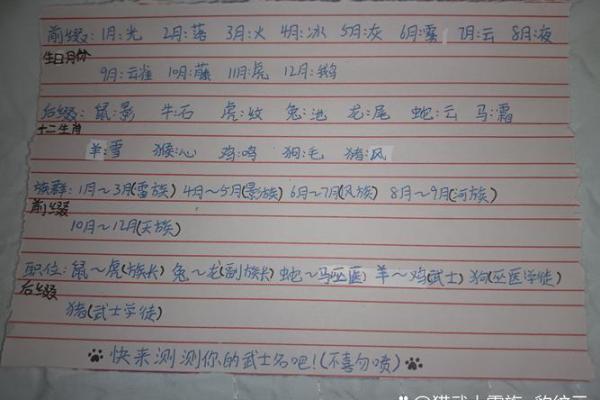 前缀:1月:光 2月:落 3月:火 4月:冰 5月:灰 6月:雪 7月:云 8月:夜
生日月份
9月:云雀 10月:藤 11月:虎 12月:鹅
后缀:鼠:影 牛:石 虎:纹 兔:池 龙:尾 蛇:云 马:霜
十二生肖
羊:雪 猴:心 鸡:鸣 狗:毛 猪:风
族群:1月~3月(雷族) 4月~5月(影族) 6月~7月(风族) 8月~9月(河族)
前缀
10月~12月(天族)
职位:鼠~虎(族长) 兔~龙(副族长) 蛇~马(巫医) 羊~鸡(武士) 狗(巫医学徒)
后缀
猪(武士学徒)
快来测测你的武士名吧!(不喜勿喷)